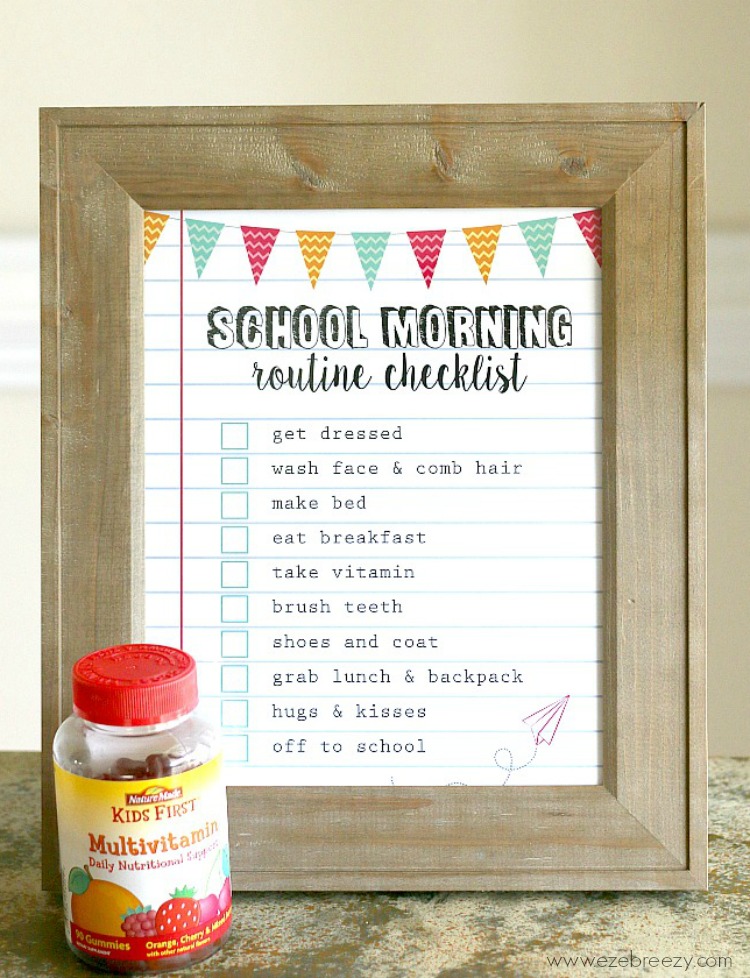 SCHOOL MORNING
routine checklist
get dressed
wash face & comb hair
make bed
eat breakfast
take vitamin
brush teeth
shoes and coat
grab lunch & backpack
hugs & kisses
off to school
Nature Made
KIDS FIRST
Multivitamin
Daily Nutritional Support
90 Gummies
Orange, Cherry & Mixed
with other natural flavors
www.ezebreezy.com